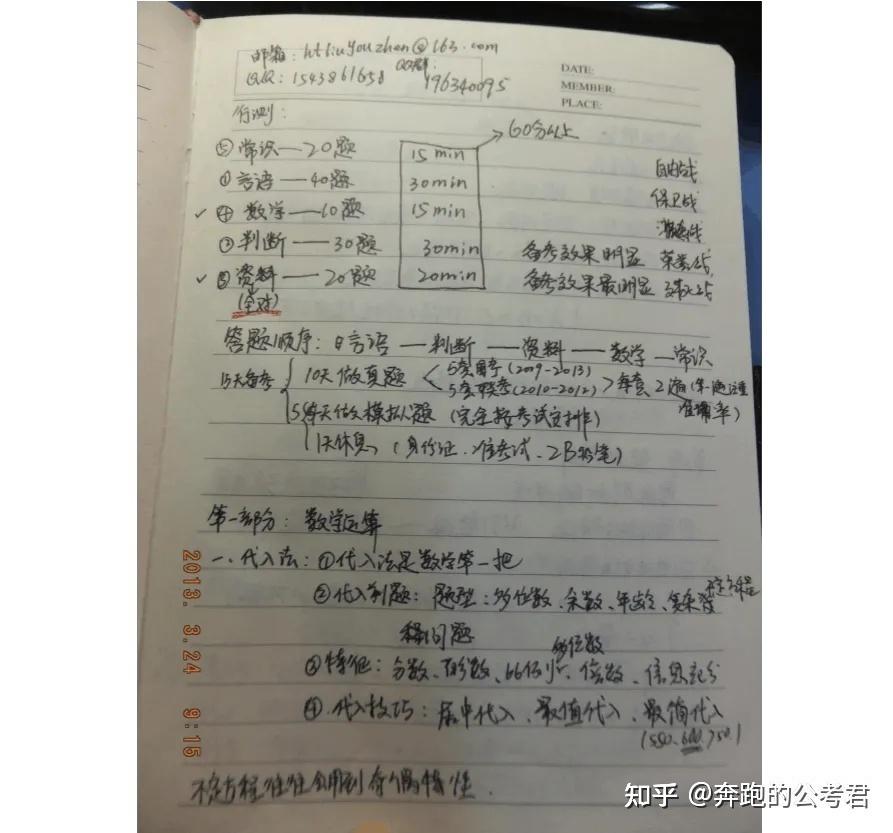 邮箱: htliuyouzhen@163.com
QQ: 1543861658 QQ群: 196340095
DATE:
MEMBER:
PLACE:
行测:
60分以上
⑤ 常识—20题 15min 自由战
① 言语—40题 30min 保卫战
✓ ④ 数学—10题 15min
② 判断—30题 30min 备考效果明显
✓ ③ 资料—20题 20min 备考效果最明显
(全对)
答题顺序: 言语—判断—资料—数学—常识
15天备考 10天做真题 5套国考(2009-2013)
5套联考(2010-2012) 每套2遍(第一遍注重准确率)
5天做模拟题(完全按考试安排)
1天休息(身份证、准考证、2B铅笔)
第一部分: 数学运算
一、代入法: ①代入法是数学第一把
②代入利题: 题型: 多位数、余数、年龄、不定方程
问题
多位数
③特征: 分数、比例、倍数、信息充分
④代入技巧: 居中代入、最值代入、最简代入
(550.600.750.)
不定方程往往会用到奇偶特性.
2013. 3.24 9:15
知乎 @奔跑的公考君